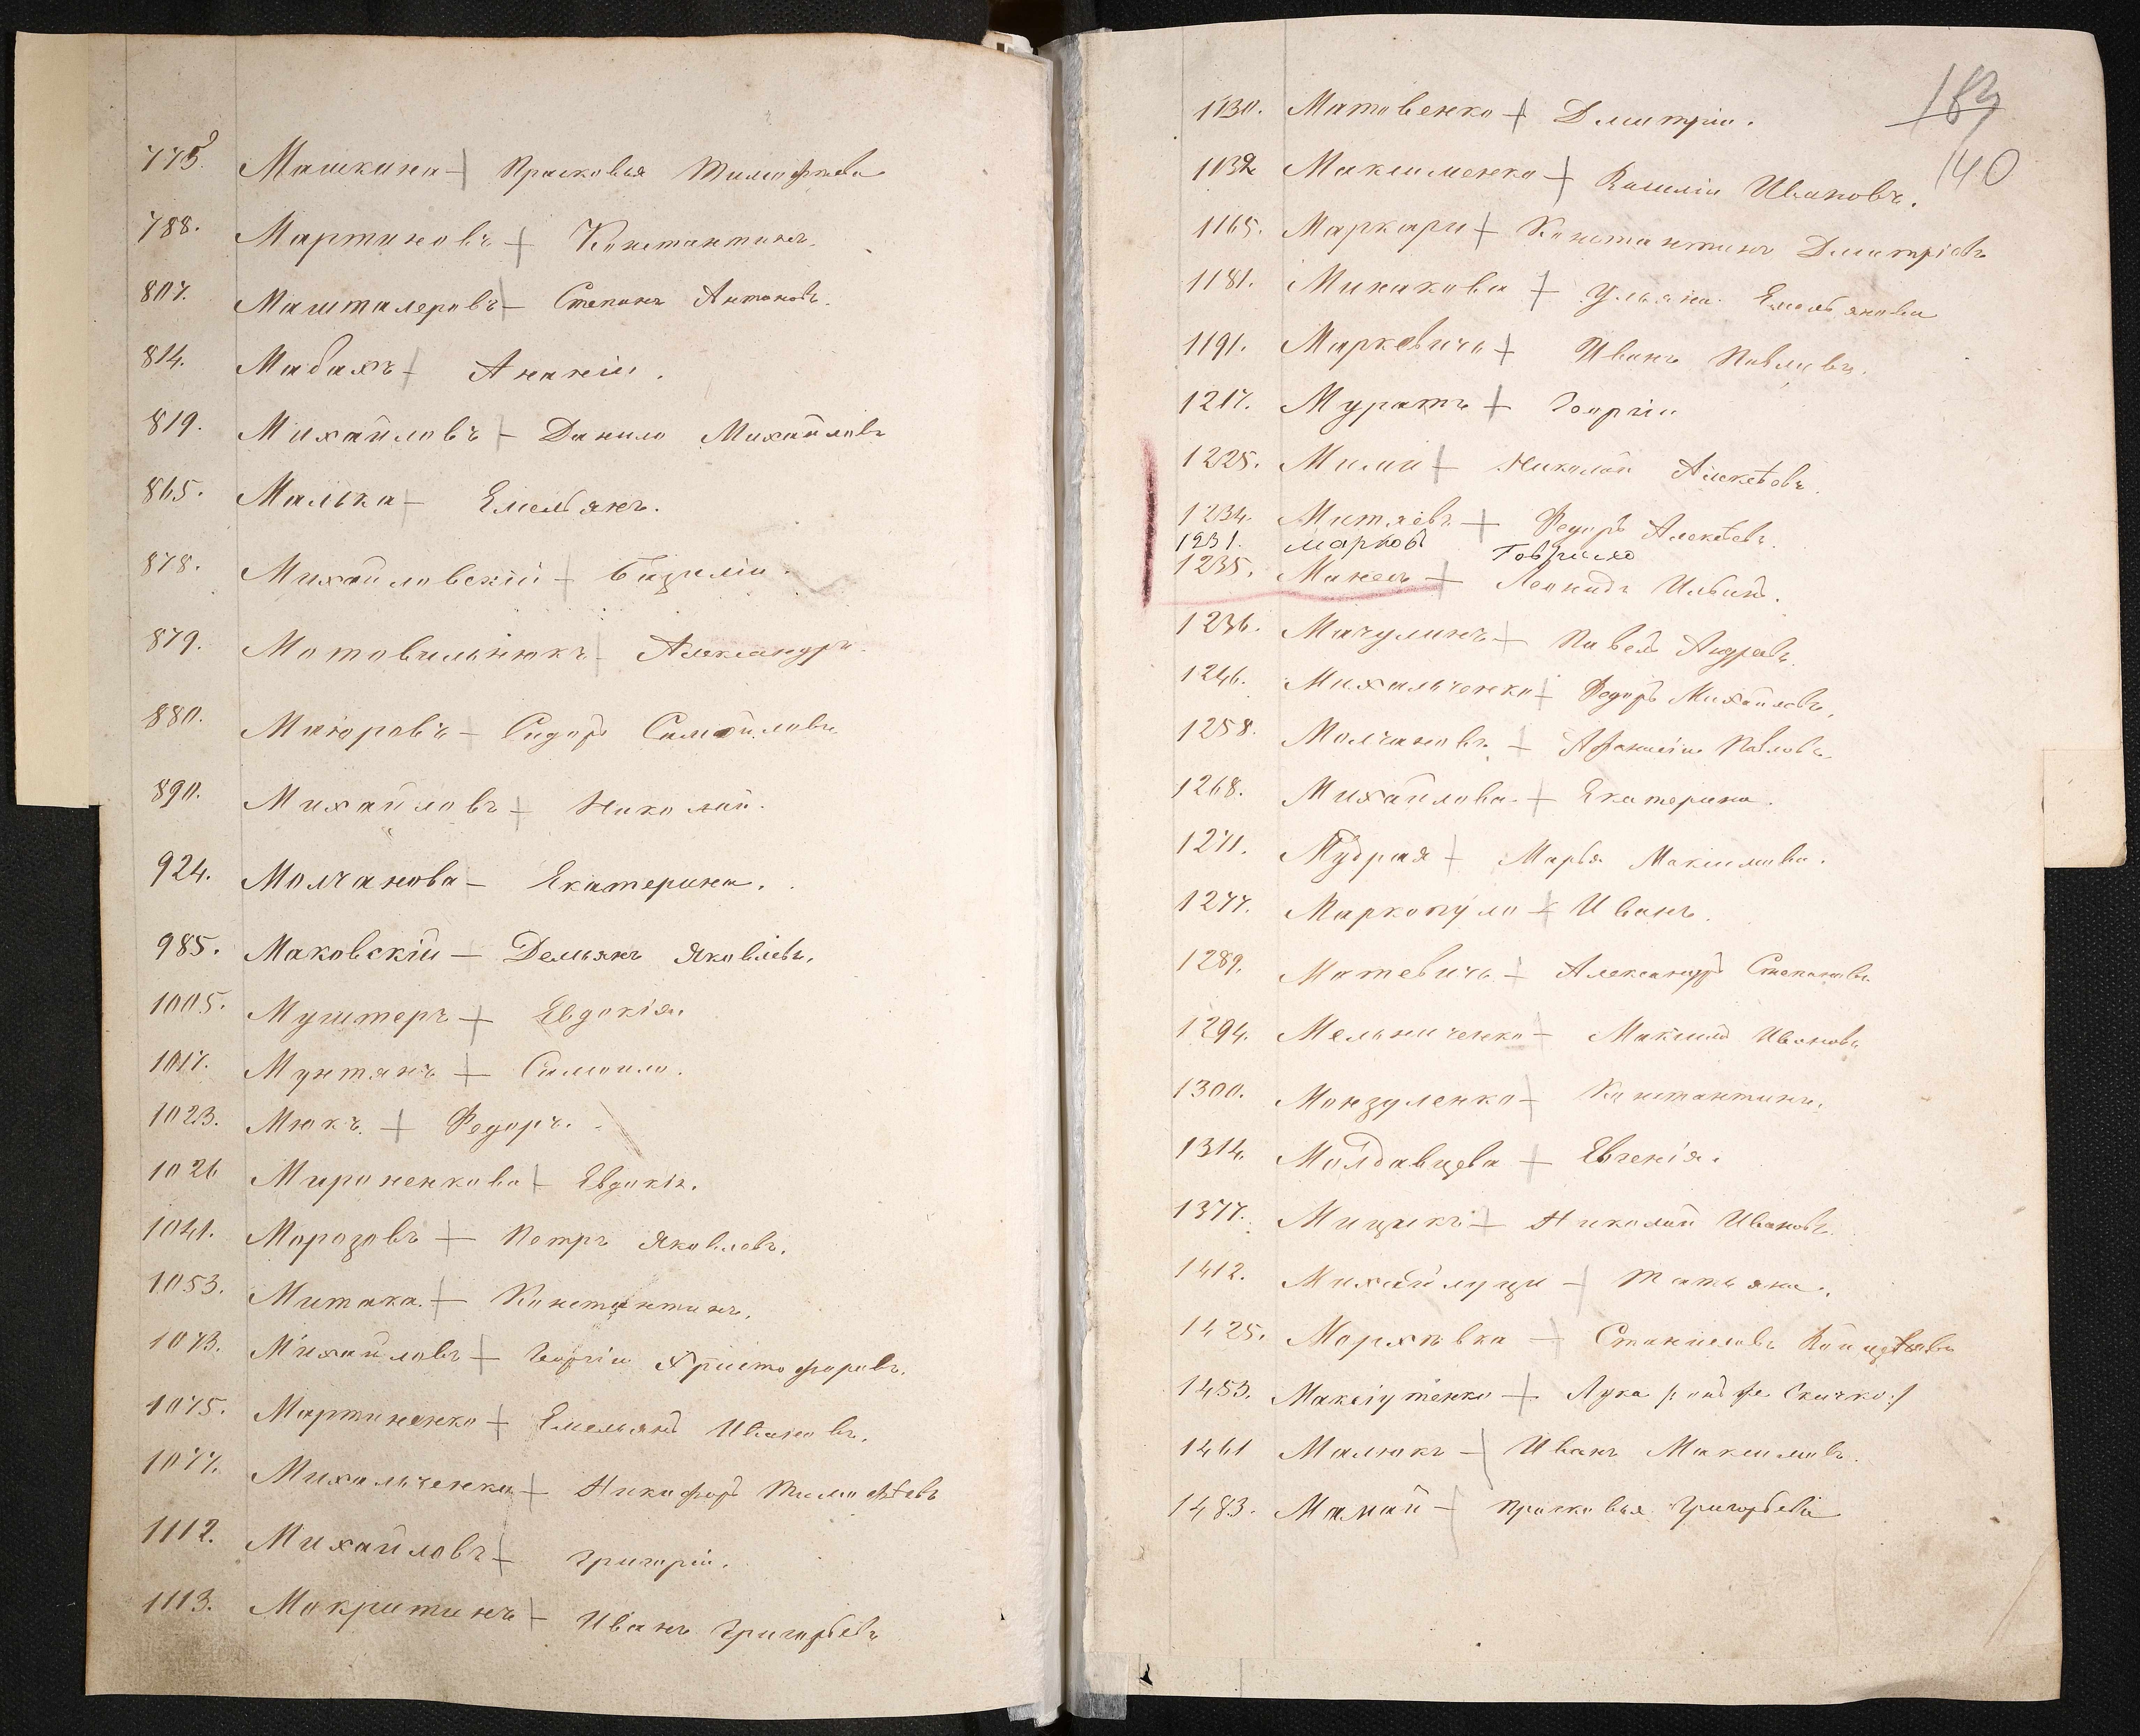 775. Машкина Прасковья Тимофѣева
788. Мартиновъ Константинъ.
807. Машталеровъ Степанъ Антоновъ.
814. Мабахъ Ананіи.
819. Михайловъ Данило Михайловъ
865. Малька Емельянъ.
878. Михайловскій Базиліи.
879. Мотовильнюкъ Александръ.
880. Маіоровъ Сидоръ Самойловъ
890. Михайловъ Николай.
924. Молчанова Екатерина.
985. Маковскій Демьянъ Яковлевъ.
1005. Мушперъ Евдокія.
1017. Мунтянъ Самоило.
1023. Мюкъ Федоръ.
1026 Мироненкова Евдокія.
1041. Морозовъ Петръ Яковлевъ.
1053. Митака Константинъ.
1073. Михайловъ Георгіи Христофоровъ.
1075. Мартиненко Емельянъ Ивановъ.
1077. Михальченко Никифоръ Тимофѣевъ
1112. Михайловъ Григоріи.
1113. Мокритинъ Иванъ Григорьевъ
183
140
1130. Матовенко Дмитріи.
1132 Максименко Василіи Ивановъ.
1165. Маркари Константинъ Дмитріевъ
1181. Минакова Ульяна Емельянова
1191. Маркевичъ Иванъ Павловъ.
1217. Муратъ Георгіи
1225. Мими Николай Алексѣевъ.
1234. Митяевъ Федоръ Алексѣевъ.
1231. Марковъ Гаврило
1235. Манесъ Леонидъ Ильинъ.
1236. Мачулинъ Павелъ Андреевъ.
1246. Михальченко Федоръ Михайловъ.
1258. Молчановъ Афанасіи Павловъ
1268. Михайлова Екатерина.
1271. Мудрая Марья Максимова.
1277. Маркопуло Иванъ.
1289. Матевичъ Александръ Степановъ
1294. Мельниченко Максимъ Ивановъ
1300. Монзуленко Константинъ.
1314. Молдавцева Евгенія.
1377. Мицикъ Николай Ивановъ.
1412. Михайлуци Татьяна.
1425. Морхѣвка Станиславъ
1453. Максіутенко Лука Скичко
1461 Малюкъ Иванъ Максимовъ.
1483. Мамай Прасковья Григорьева